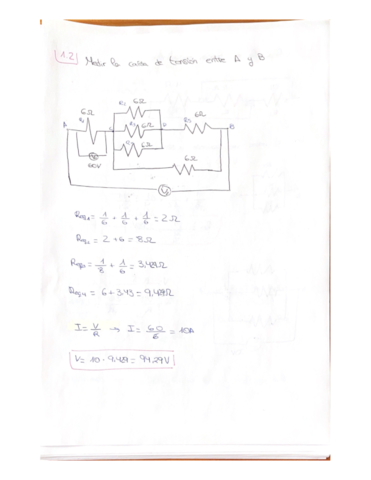 1.2 Medir la caída de tensión entre A y B
R2 6Ω
6Ω 6Ω
R1 R3 6Ω R5
A C D B
R4 6Ω
60V 6Ω
V
Req1 = 1/6 + 1/6 + 1/6 = 2Ω
Req2 = 2 + 6 = 8Ω
Req3 = 1/8 + 1/6 = 3.429Ω
Req4 = 6 + 3.43 = 9.429Ω
I = V/R → I = 60/6 = 10A
V = 10 · 9.429 = 94.29V